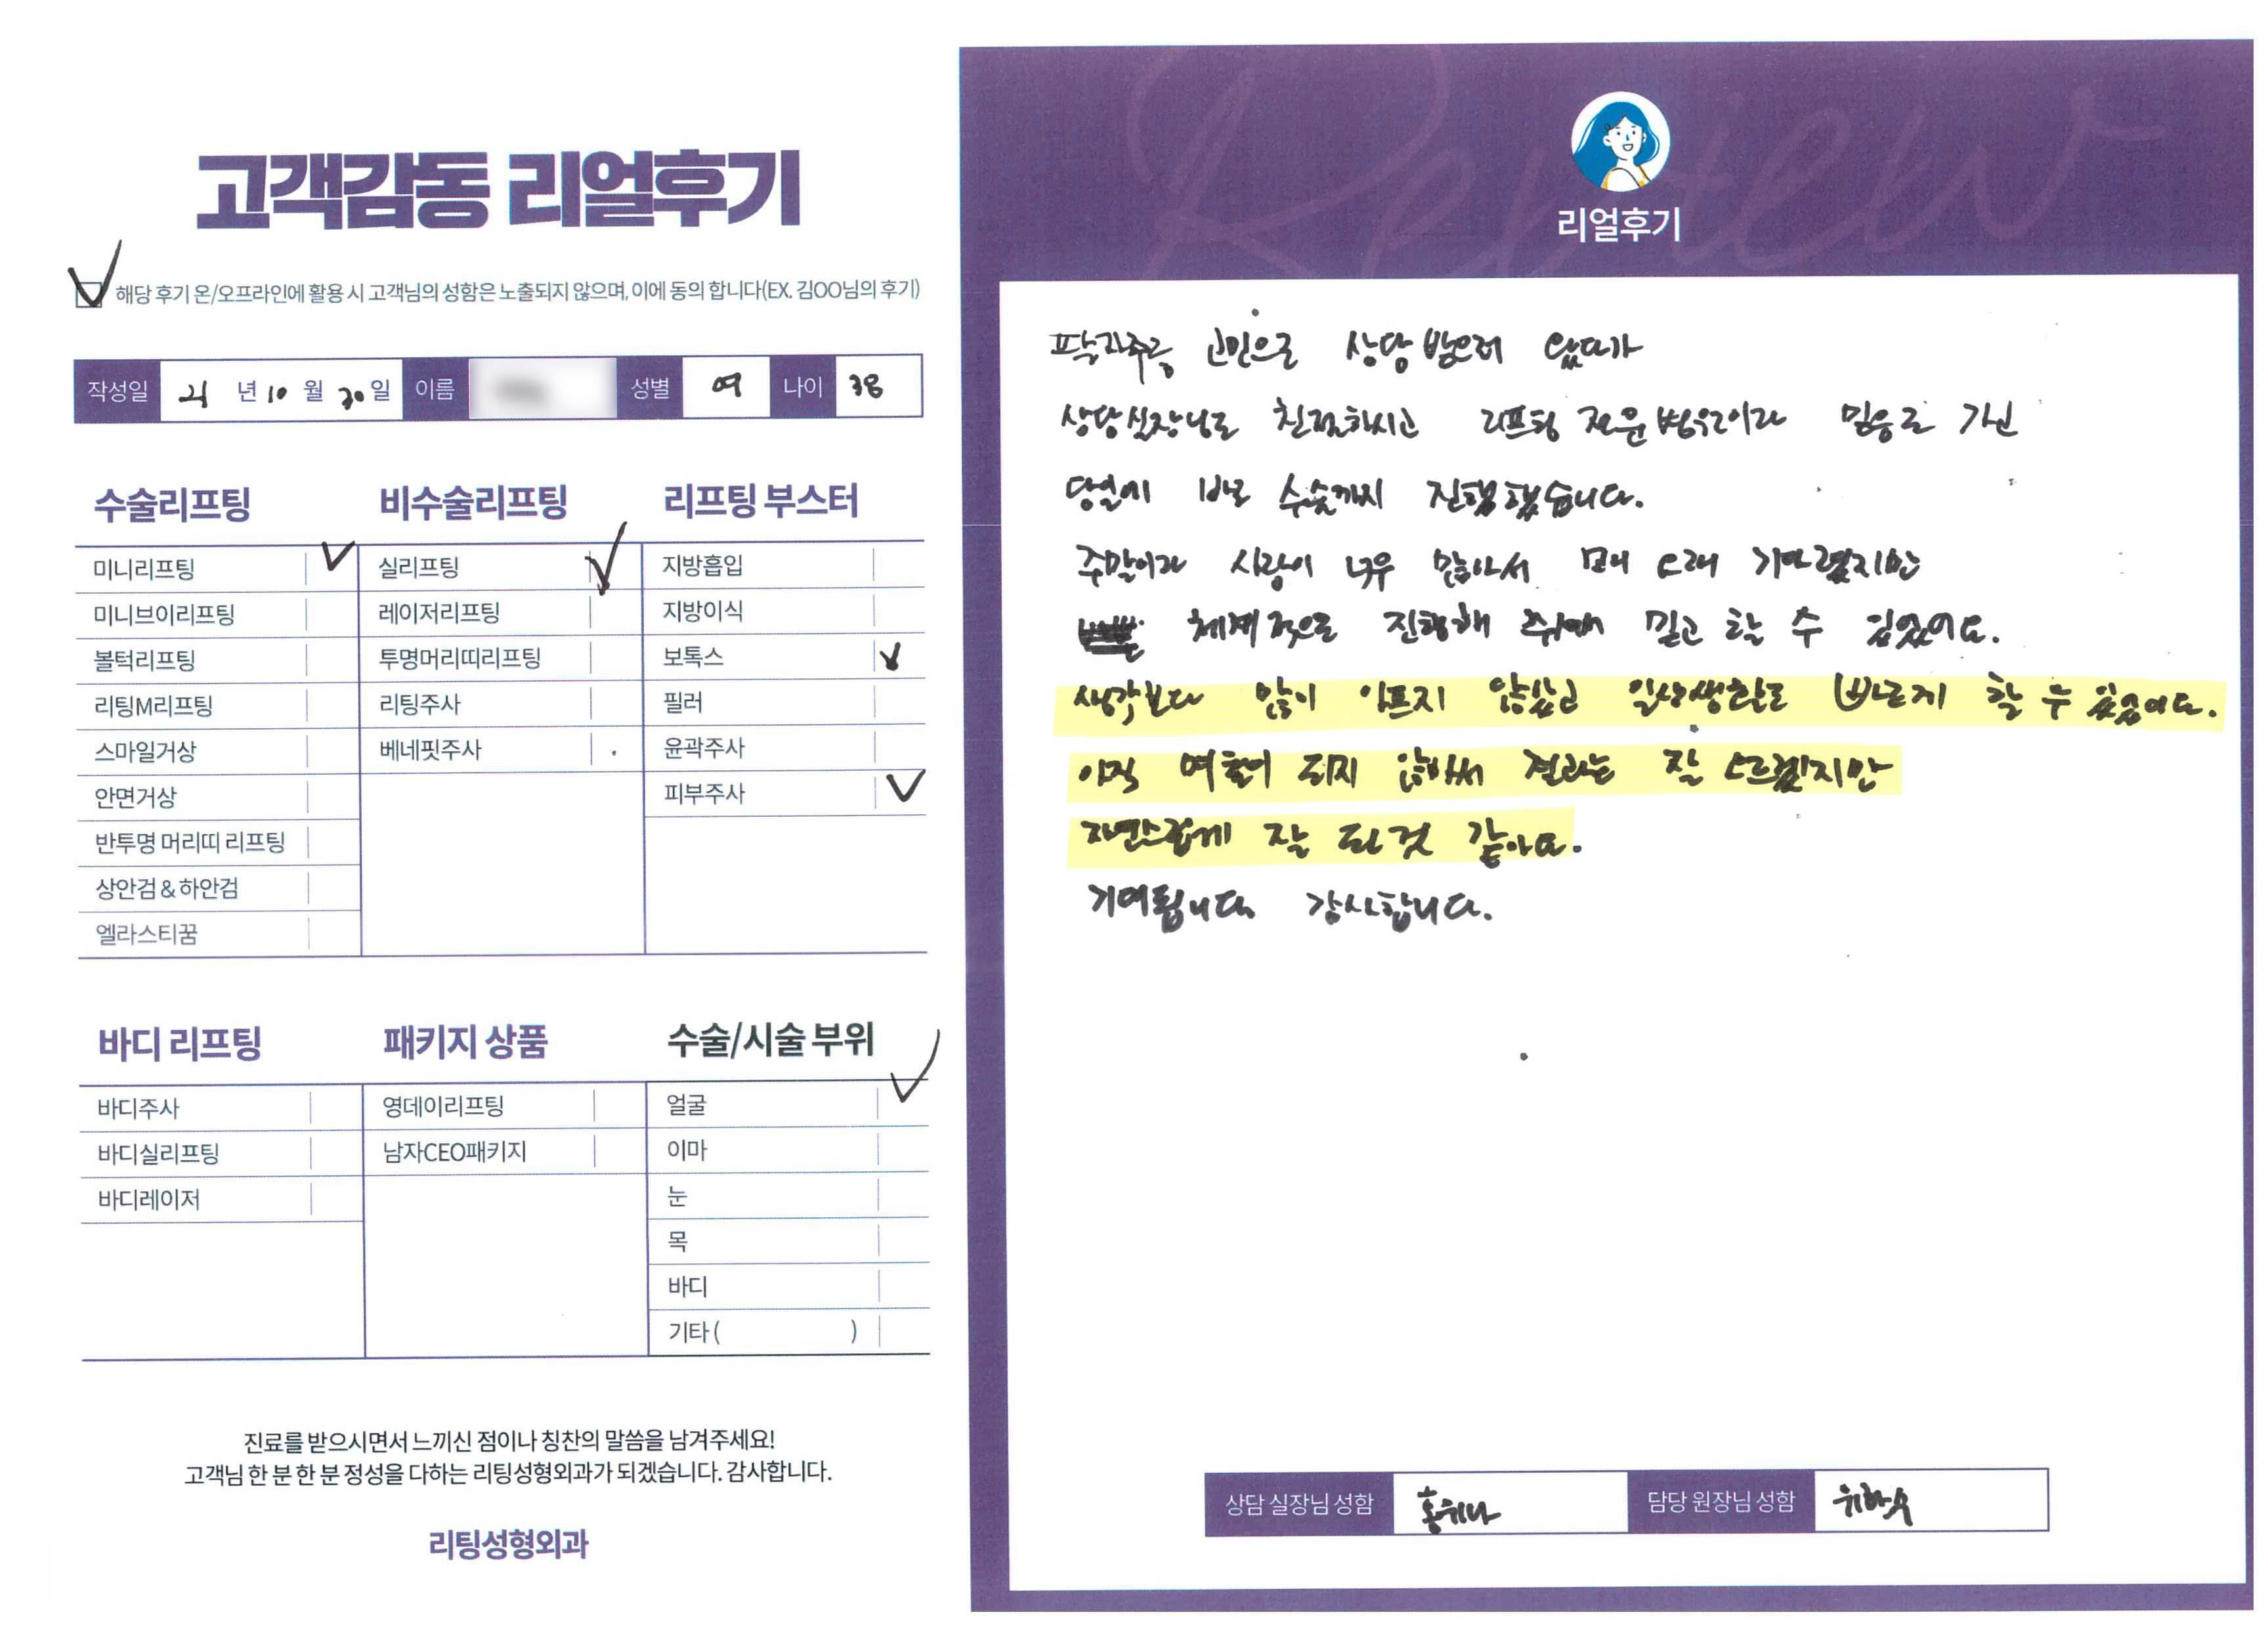 고객감동 리얼후기
해당 후기 온/오프라인에 활용 시 고객님의 성함은 노출되지 않으며, 이에 동의 합니다(EX. 김OO님의 후기)
작성일 21 년 10 월 30 일 이름 성별 여 나이 38
수술리프팅
미니리프팅
미니브이리프팅
볼턱리프팅
리팅M리프팅
스마일거상
안면거상
반투명 머리띠 리프팅
상안검 & 하안검
엘라스티꿈
비수술리프팅
실리프팅
레이저리프팅
투명머리띠리프팅
리팅주사
베네핏주사
리프팅 부스터
지방흡입
지방이식
보톡스
필러
윤곽주사
피부주사
바디 리프팅
바디주사
바디실리프팅
바디레이저
패키지 상품
영데이리프팅
남자CEO패키지
수술/시술 부위
얼굴
이마
눈
목
바디
기타 ( )
진료를 받으시면서 느끼신 점이나 칭찬의 말씀을 남겨주세요!
고객님 한 분 한 분 정성을 다하는 리팅성형외과가 되겠습니다. 감사합니다.
리팅성형외과
Review
리얼후기
팔자주름 고민으로 상담 받으러 왔다가
상담실장님도 친절하시고 리프팅 전문병원이라 믿음도 가신
당일에 바로 수술까지 진행했습니다.
주말이라 사람이 너무 많아서 오래 기다렸지만
체계적으로 진행해 주셔서 믿고 할 수 있었어요.
생각보다 많이 아프지 않았고 일상생활도 빠르게 할 수 있었어요.
아직 며칠이 되지 않아서 결과는 잘 모르겠지만
자연스럽게 잘 된것 같아요.
기대됩니다 감사합니다.
상담 실장님 성함 담당 원장님 성함 위하수